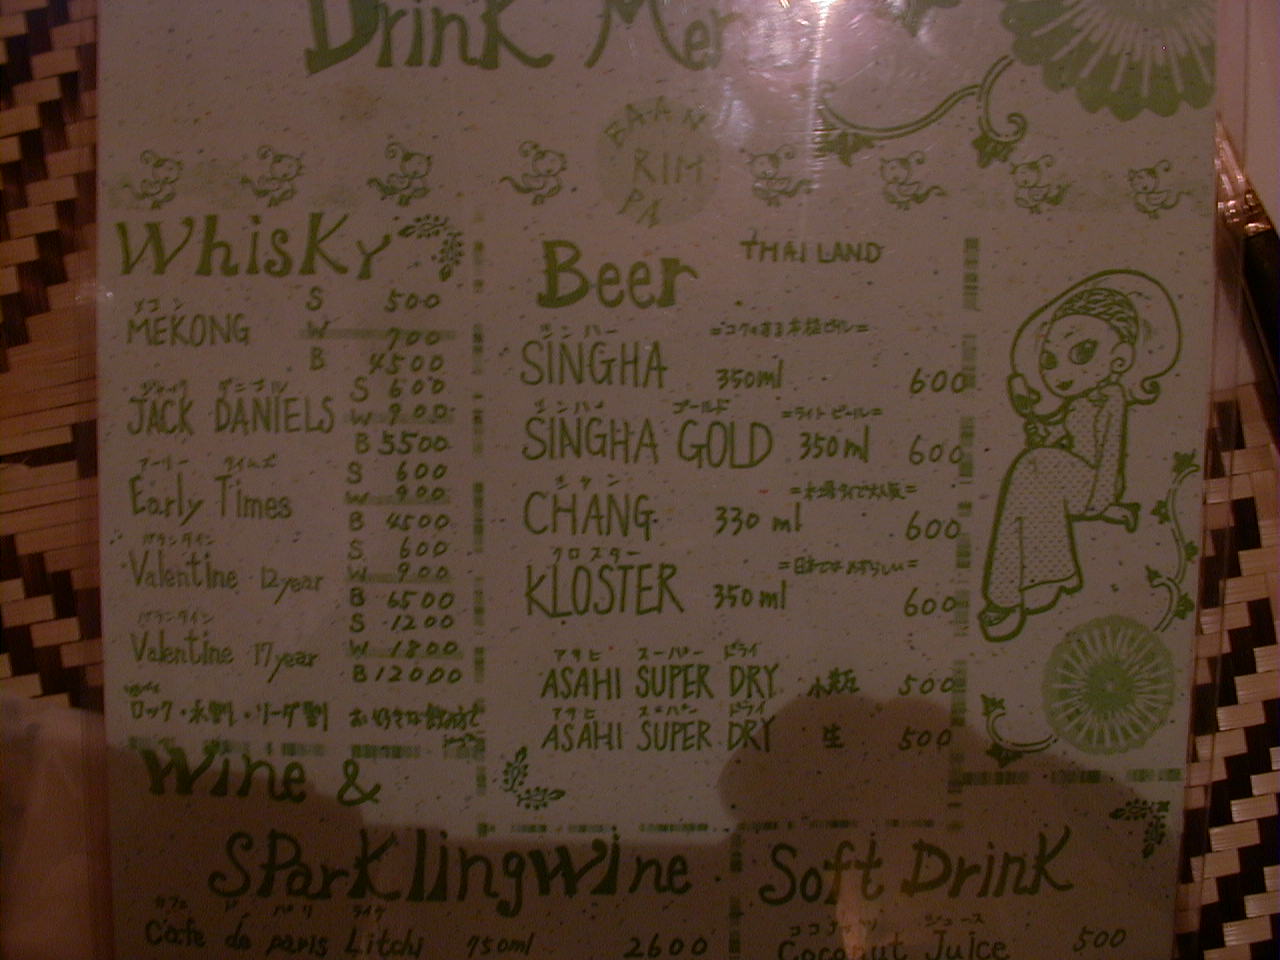 Drink Menu
BAAN
RIM
PA
Whisky
メコン S 500
MEKONG W 700
B 4500
ジャック ダニエル S 600
JACK DANIELS W 900
B 5500
アーリー タイムズ S 600
Early Times W 900
B 4500
バランタイン S 600
Valentine 12year W 900
B 6500
バランタイン S 1200
Valentine 17year W 1800
B 12000
ロック・水割・ソーダ割 お好きな飲み方で
Beer THAILAND
シンハー =コクのある本格ビール=
SINGHA 350ml 600
シンハー ゴールド =ライトビール=
SINGHA GOLD 350ml 600
チャン
CHANG 330ml 600
クロスター =日本ではめずらしい=
KLOSTER 350ml 600
アサヒ スーパー ドライ
ASAHI SUPER DRY 小瓶 500
アサヒ スーパー ドライ
ASAHI SUPER DRY 生 500
Wine &
Sparklingwine
カフェ ド パリ ライチ
Cafe de paris Litchi 750ml 2600
Soft Drink
ココナッツ ジュース
Coconut Juice 500